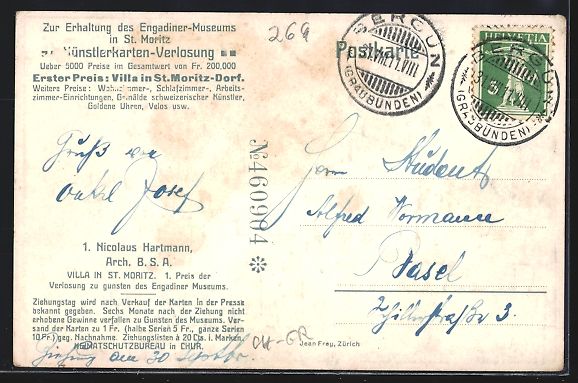 Zur Erhaltung des Engadiner-Museums
in St. Moritz
Künstlerkarten-Verlosung
Ueber 5000 Preise im Gesamtwert von Fr. 200,000
Erster Preis: Villa in St. Moritz-Dorf.
Weitere Preise: Wohnzimmer-, Schlafzimmer-, Arbeits-
zimmer-Einrichtungen, Gemälde schweizerischer Künstler,
Goldene Uhren, Velos usw.
269
Postkarte
BERGÜN
(GRAUBÜNDEN)
HELVETIA
BERGÜN
(GRAUBÜNDEN)
Gruß von
Onkel Josef
№ 460904 ✻
Herrn Student
Alfred Wormann
Basel
3.
1. Nicolaus Hartmann,
Arch. B. S. A.
VILLA IN ST. MORITZ. 1. Preis der
Verlosung zu gunsten des Engadiner Museums.
Ziehungstag wird nach Verkauf der Karten in der Presse
bekannt gegeben. Sechs Monate nach der Ziehung nicht
erhobene Gewinne verfallen zu Gunsten des Museums. Ver-
sand der Karten zu 1 Fr. (halbe Serien 5 Fr., ganze Serien
10 Fr.) geg. Nachnahme. Ziehungslisten à 20 Cts. i. Marken.
HEIMATSCHUTZBUREAU in CHUR.
Ziehung am 30
CH-GR
Jean Frey, Zürich